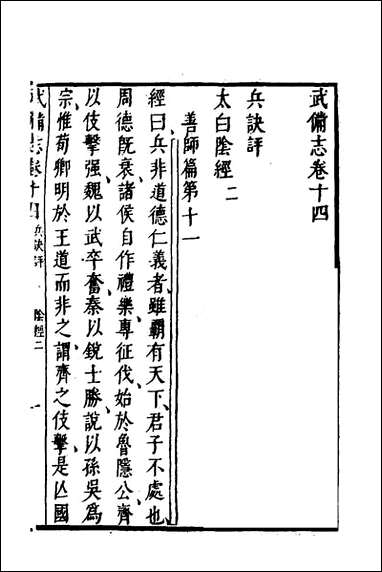 武備志卷十四
兵訣評
太白陰經二
善師篇第十一
經曰兵非道德仁義者雖霸有天下君子不處也
周德旣衰諸侯自作禮樂專征伐始於魯隱公齊
以伎擊强魏以武卒奮秦以銳士勝說以孫吳爲
宗惟荀卿明於王道而非之謂齊之伎擊是亾國
武備志卷十四 兵訣評 陰經二 一